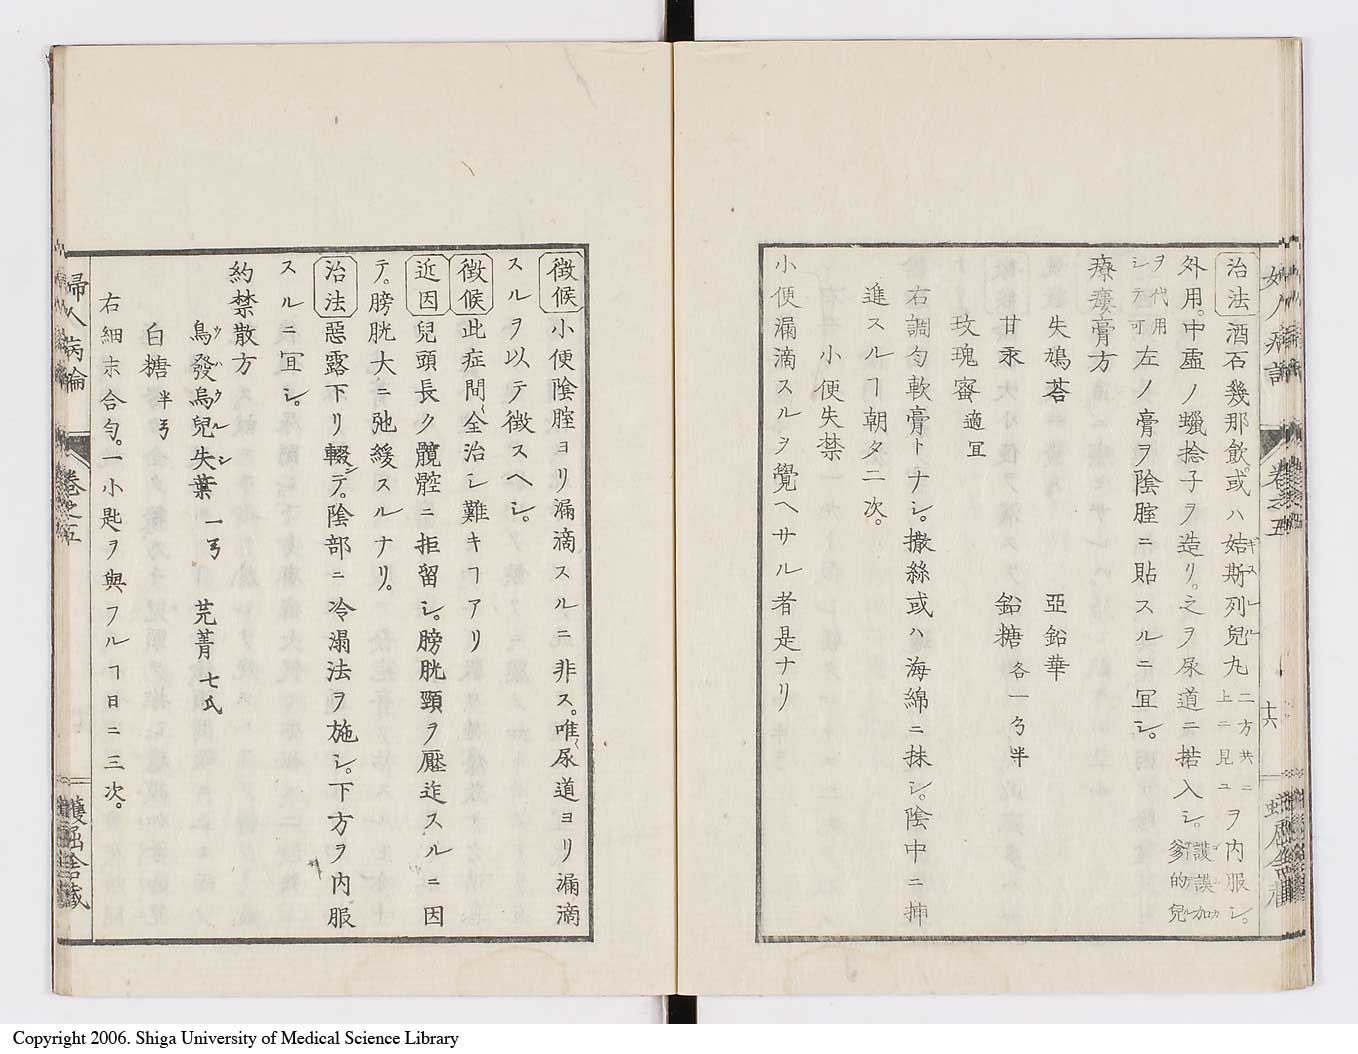 治法 酒石幾那飲。或ハ姞斯列兒丸二方共ニ上ニ見ユヲ内服シ。
外用。中盧ノ蠟捻子ヲ造リ。之ヲ尿道ニ揩入シ。護謨加爹的兒
ヲ代用シテ可左ノ膏ヲ陰腟ニ貼スルニ冝シ。
療瘻膏方
失鳩荅 亞鉛華
甘汞 鉛糖 各一㐅半
玫瑰蜜 適冝
右調勻軟膏トナシ。撒絲或ハ海綿ニ抹シ。陰中ニ挿
進スルヿ朝夕二次。
小便失禁
小便漏滴スルヲ覺ヘサル者是ナリ
女人病論 卷之五 十六
徴候 小便陰腟ヨリ漏滴スルニ非ス。唯尿道ヨリ漏滴
スルヲ以テ徴スヘシ。
徴候 此症間全治シ難キヿアリ
近因 兒頭長ク髖腔ニ拒留シ。膀胱頸ヲ壓迮スルニ因
テ。膀胱大ニ弛緩スルナリ。
治法 惡露下リ輟テ。陰部ニ冷溻法ヲ施シ。下方ヲ内服
スルニ冝シ。
約禁散方
烏發烏兒失葉 一㐅 芫菁 七氏
白糖 半㐅
右細末合勻。一小匙ヲ與フルヿ日ニ三次。
婦人病論 卷之五 蠖屈舍藏
Copyright 2006. Shiga University of Medical Science Library